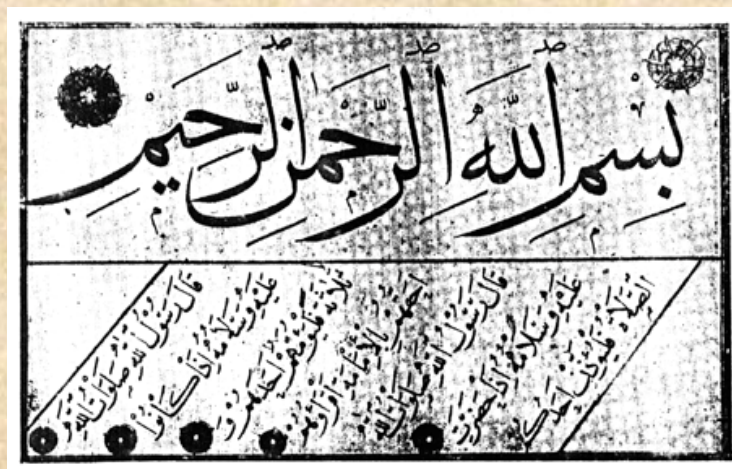 بِسْمِ اللَّهِ الرَّحْمٰنِ الرَّحِيْمِ
قَالَ رَسُوْلُ اللهِ صَلَوَاتُ اللهِ
عَلَيْهِ وَسَلَامُهُ إِذَا كَانُوْا
ثَلَاثَة فَلْيَؤُمَّهُمْ أَحَدُهُمْ وَ
احَقُّهُمْ بِالْاِمَامَةِ اَقْرَؤُهُمْ
قَالَ رَسُوْلُ اللهِ صَلَوَاتُ اللهِ
عَلَيْهِ وَسَلَامُهُ إِذَا حَضَرَتِ
الصَّلَاةُ فَلْيُؤَذِّنْ اَحَدُكُمْ